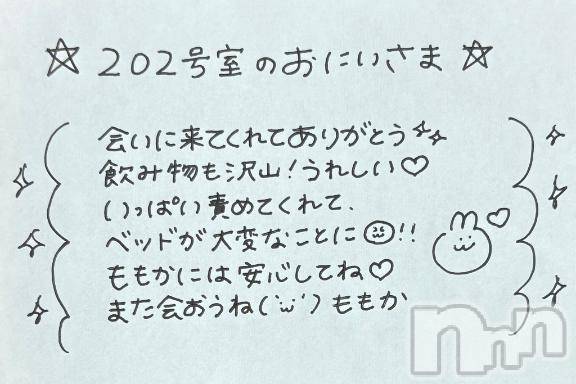 ☆202号室のおにいさま☆
会いに来てくれてありがとう✨
飲み物も沢山!うれしい♡
いっぱい責めてくれて、
ベッドが大変なことに!!
ももかには安心してね♡
また会おうね(˙ω˙) ももか
nmn